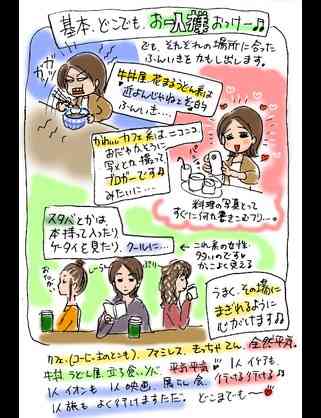 基本、どこでも、お一人様おっけー♪
でも、それぞれの場所に合った
ふんいきをかもし出します。
ガッ
ガッ
牛丼屋、花まるうどん系は
近よんじゃねえぞ的
ふんいき…
かわいいカフェ系は、ニコニコ
おだやかそうに
写メとか撮って
ブロガーですよ
みたいに…
料理の写真とって
すぐに何か書きこむフリー。
スタバとかは、
本持って入ったり
ケータイを見たり、クールに…
← これ系の女性
多いのです
かっこよく見える
うまく、その場に
まぎれるように
心がけますよ
カフェ、(コーヒー主のところも)、ファミレス、もっちゃてん、全然平気。
牛丼、うどん屋、立ち食いソバ、平気平気 1人イケテも、
1人イオンも 1人映画、居らん会、行ける行ける♪
1人旅もよく行けますただ。どこまでも〜